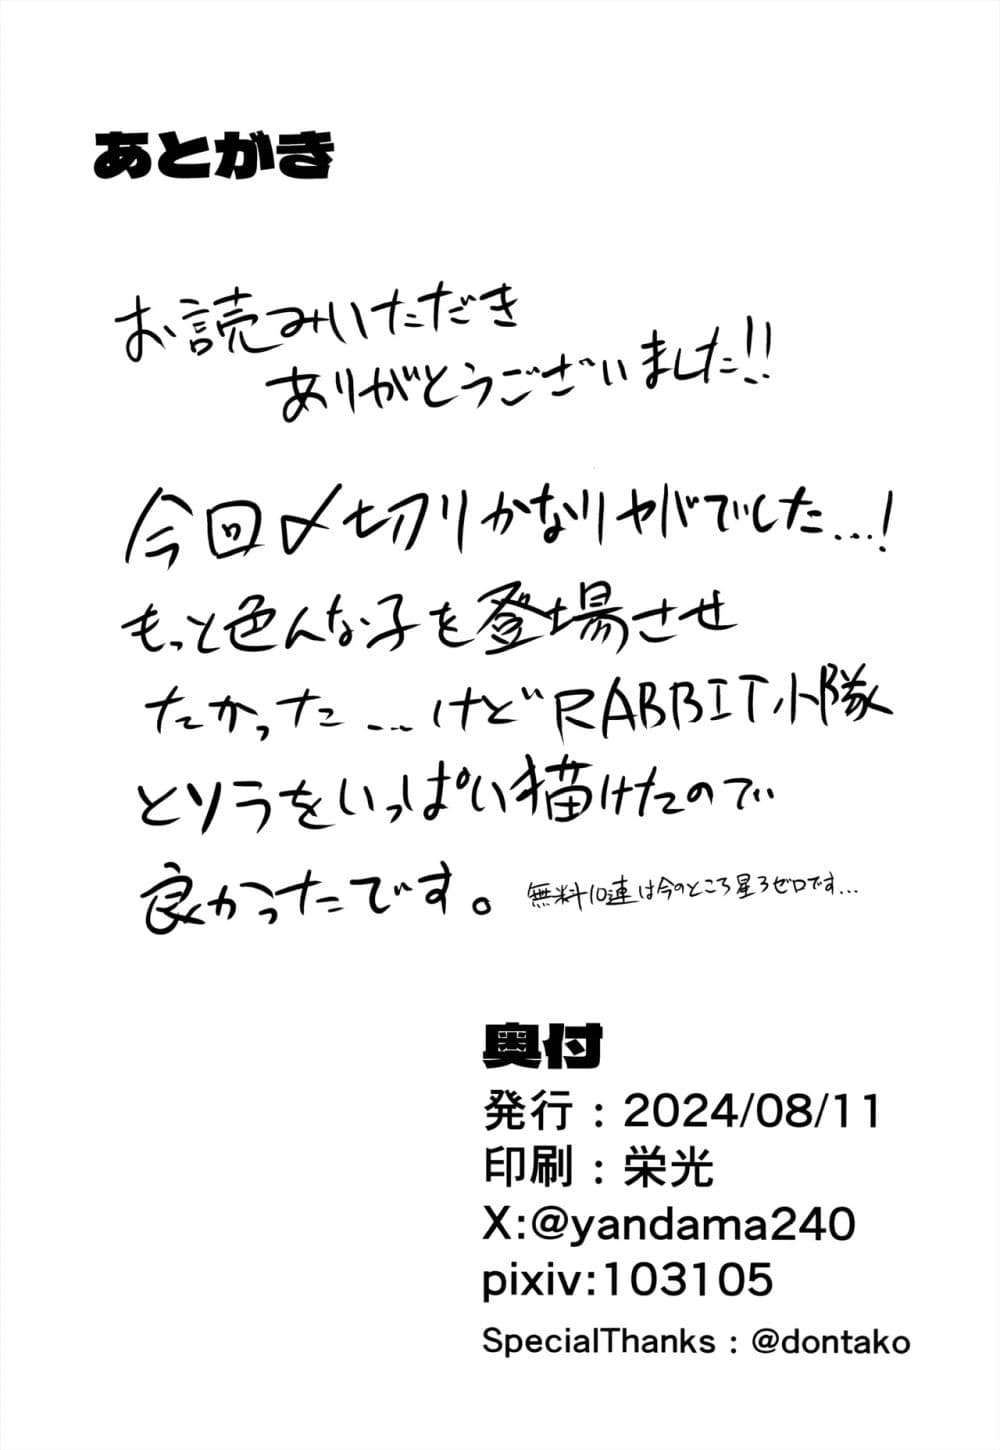 あとがき
お読みいただき
ありがとうございました!!
今回〆切りかなりヤバでした...!
もっと色んな子を登場させ
たかった...けどRABBIT小隊
とソラをいっぱい描けたので
良かったです。
無料10連は今のところ星3ゼロです...
奥付
発行：2024/08/11
印刷：栄光
X:@yandama240
pixiv:103105
SpecialThanks：@dontako